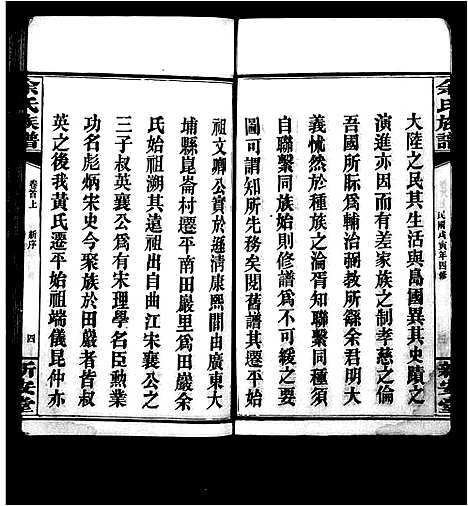 余氏族譜
民國戊寅年四修
新安堂
大陸之民其生活與島國異其史蹟之
演進亦因而有差家族之制孝慈之倫
吾國所賑為輔治弼教所繇余君明大
義怵然於種族之淪胥知聯繫同種須
自聯繫同族始則修譜為不可緩之要
圖可謂知所先務矣閱舊譜其遷平始
祖文卿公實於遜清康熙間由廣東大
埔縣崑崙村遷平南田嚴里為田嚴余
氏始祖溯其遠祖出自曲江宋襄公之
三子叔英襄公為有宋理學名臣勲業
功名彪炳宋史今聚族於田嚴者皆叔
英之後我黃氏遷平始祖端儀昆仲亦
余氏族譜
卷首上
新序
四
新安堂